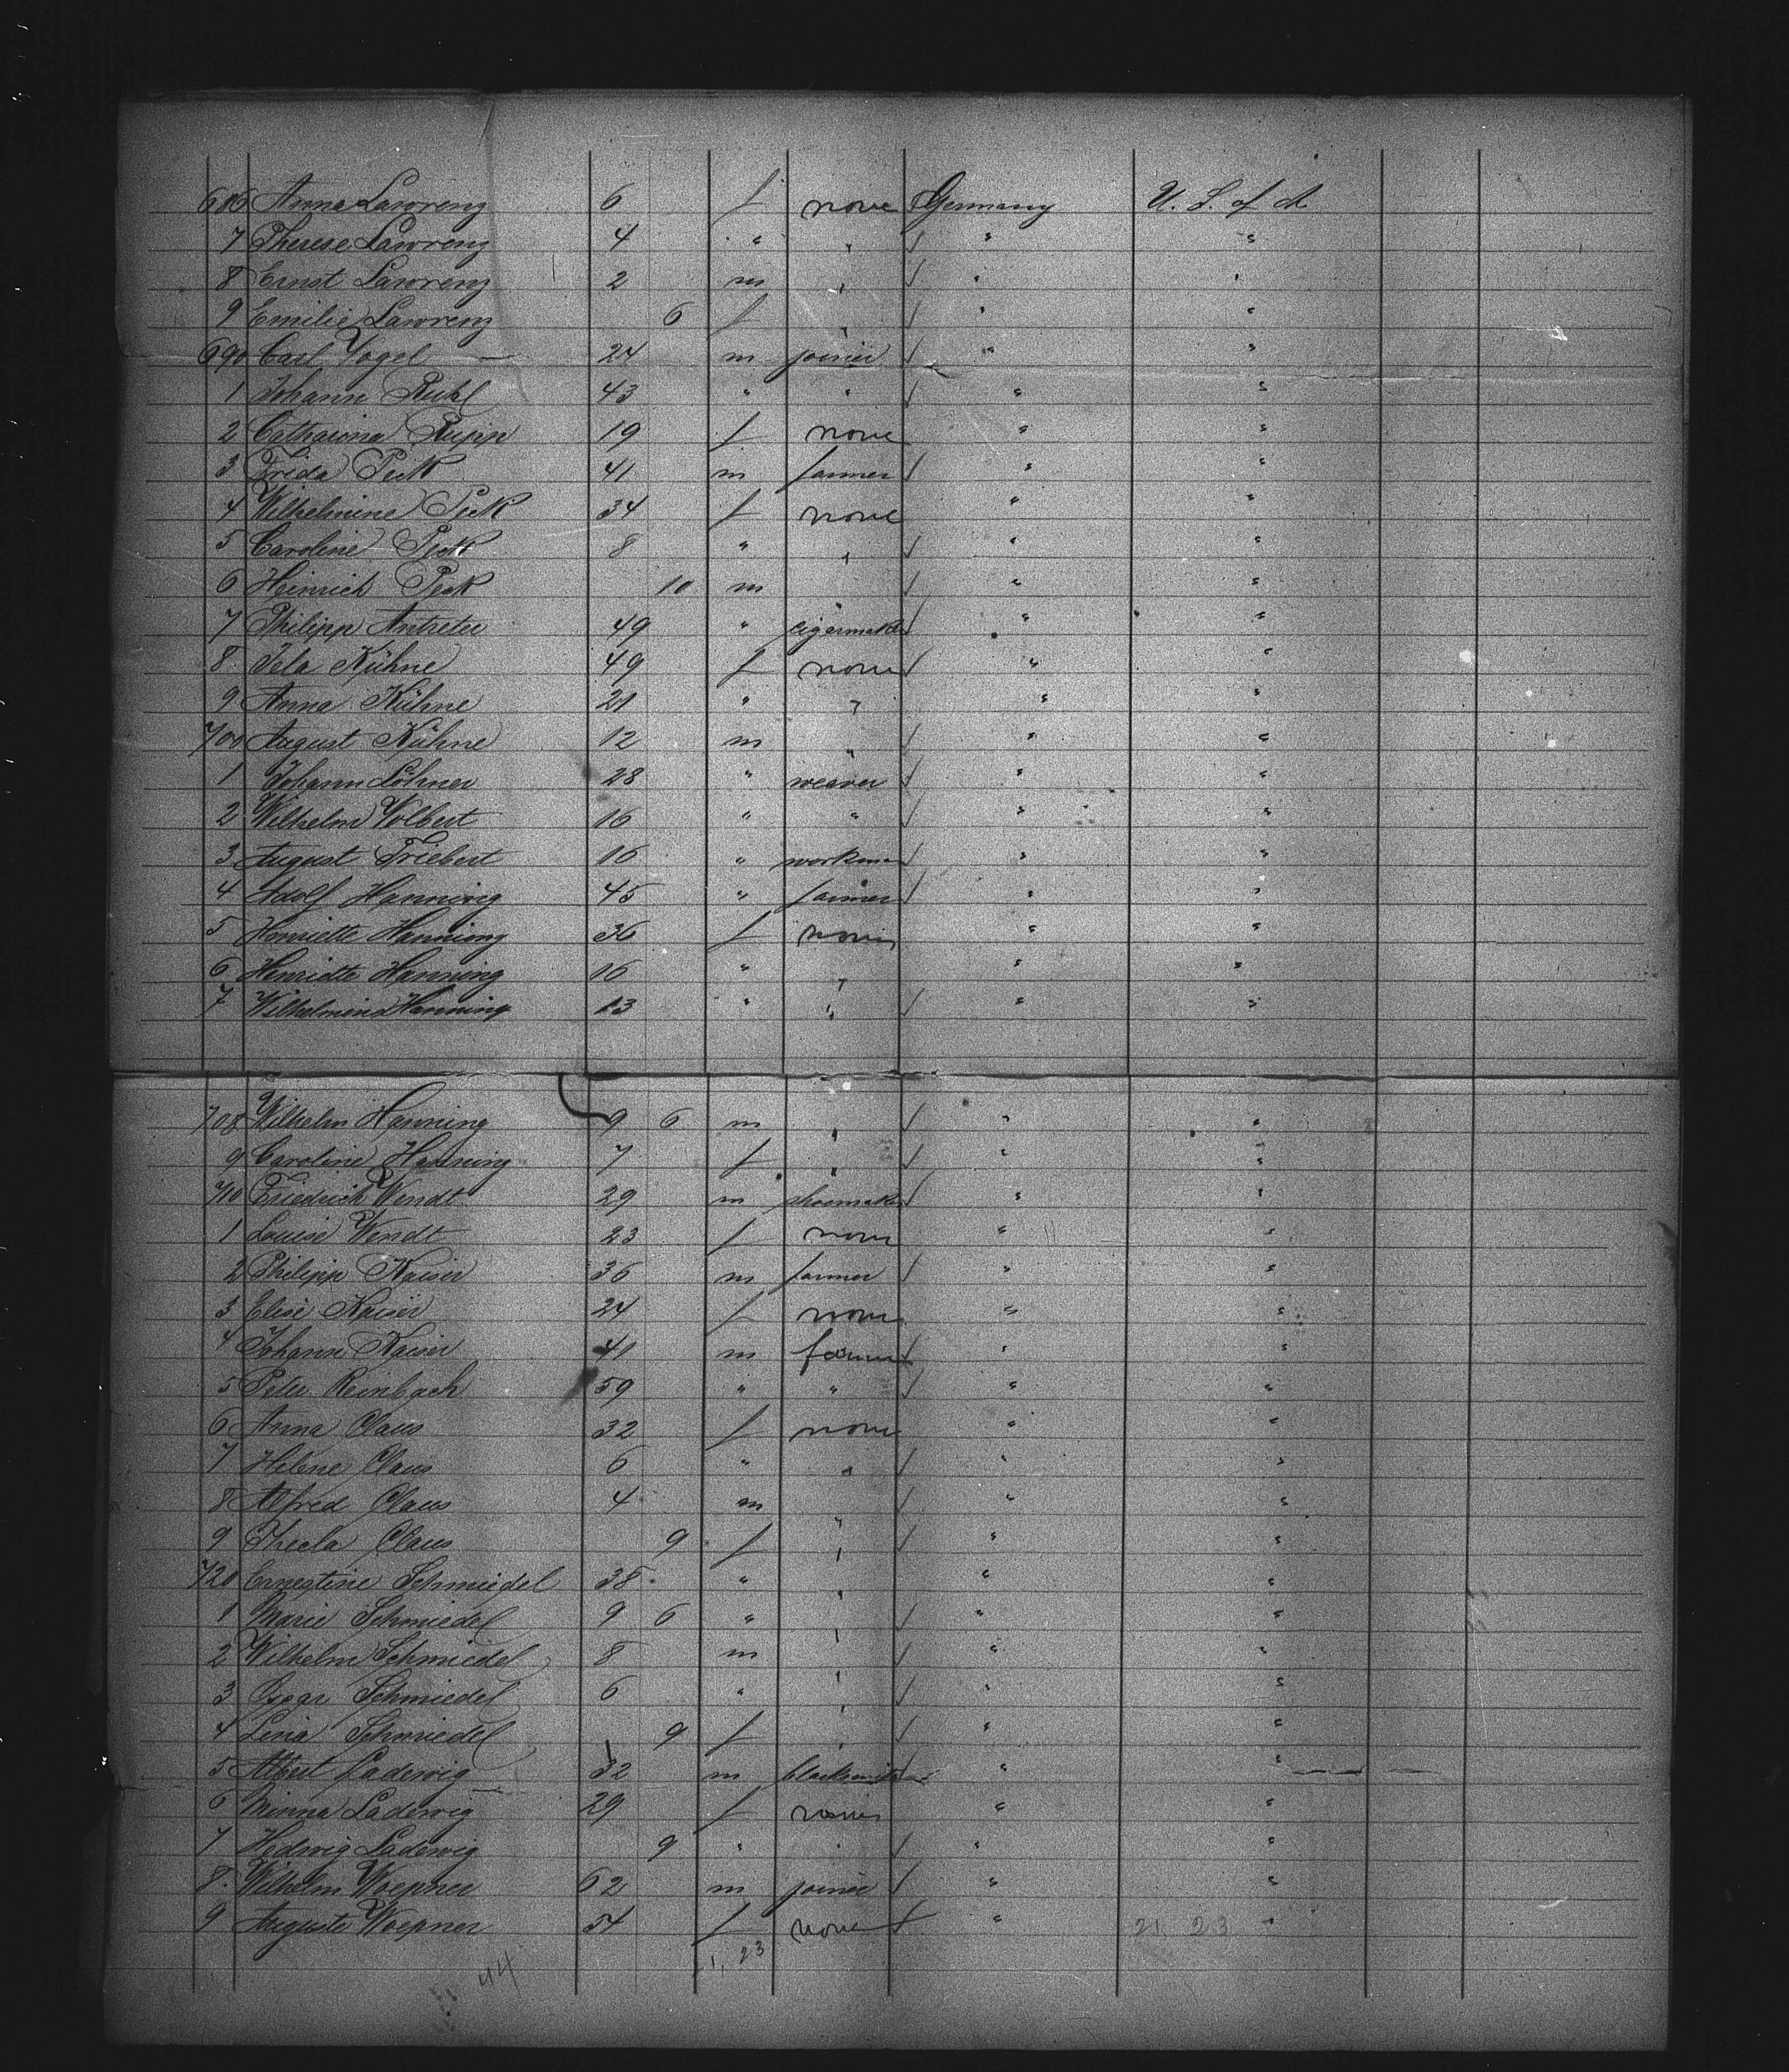 686 Anna Lawrenz 6 f none Germany U. S. of A
7 Therese Lawrenz 4 " " ✓ " "
8 Ernst Lawrenz 2 m " ✓ " "
9 Emilie Lawrenz 6 f " ✓ " "
690 Carl Vogel 24 m joiner ✓ " "
1 Johann Ruhl 43 " " ✓ " "
2 Catharina Rupp 19 f none " "
3 Frida Peek 41 m farmer ✓ " "
4 Wilhelmine Peek 34 f none " "
5 Caroline Peek 8 " " ✓ " "
6 Heinrich Peek 10 m ✓ " "
7 Philipp Antreter 49 " cigarmaker ✓ " "
8 Tela Kühne 49 f none ✓ " "
9 Anna Kühne 21 " " " "
700 August Kühne 12 m " ✓ " "
1 Johann Löhner 28 " weaver ✓ " "
2 Wilhelm Volbert 16 " " ✓ " "
3 August Triebert 16 " workman ✓ " "
4 Adolf Hanning 45 " farmer ✓ " "
5 Henriette Hanning 36 f none " "
6 Henriette Hanning 16 " " " "
7 Wilhelmine Hanning 13 " " ✓ " "
708 Wilhelm Hanning 9 6 m " ✓ " "
9 Caroline Hanning 7 f " ✓ " "
710 Friedrich Wendt 29 m shoemaker ✓ " "
1 Louise Wendt 23 f none " "
2 Philipp Kaiser 36 m farmer ✓ " "
3 Elise Kaiser 24 f none " "
4 Johann Kaiser 41 m farmer ✓ " "
5 Peter Reinbach 59 " " ✓ " "
6 Anna Claus 32 f none " "
7 Helene Claus 6 " " ✓ " "
8 Alfred Claus 4 m ✓ " "
9 Thecla Claus 9 f " ✓ " "
720 Ernestine Schmiedel 38 " " " "
1 Marie Schmiedel 9 6 " " ✓ " "
2 Wilhelm Schmiedel 8 m " ✓ " "
3 Oscar Schmiedel 6 " " ✓ " "
4 Lina Schmiedel 9 f " ✓ " "
5 Albert Ladewig 32 m blacksmith " "
6 Minna Ladewig 29 f none " "
7 Hedwig Ladewig 9 " " ✓ " "
8 Wilhelm Woepner 62 m joiner ✓ " "
9 Auguste Woepner 54 f none ✓ " 21, 23 "
44 1, 23